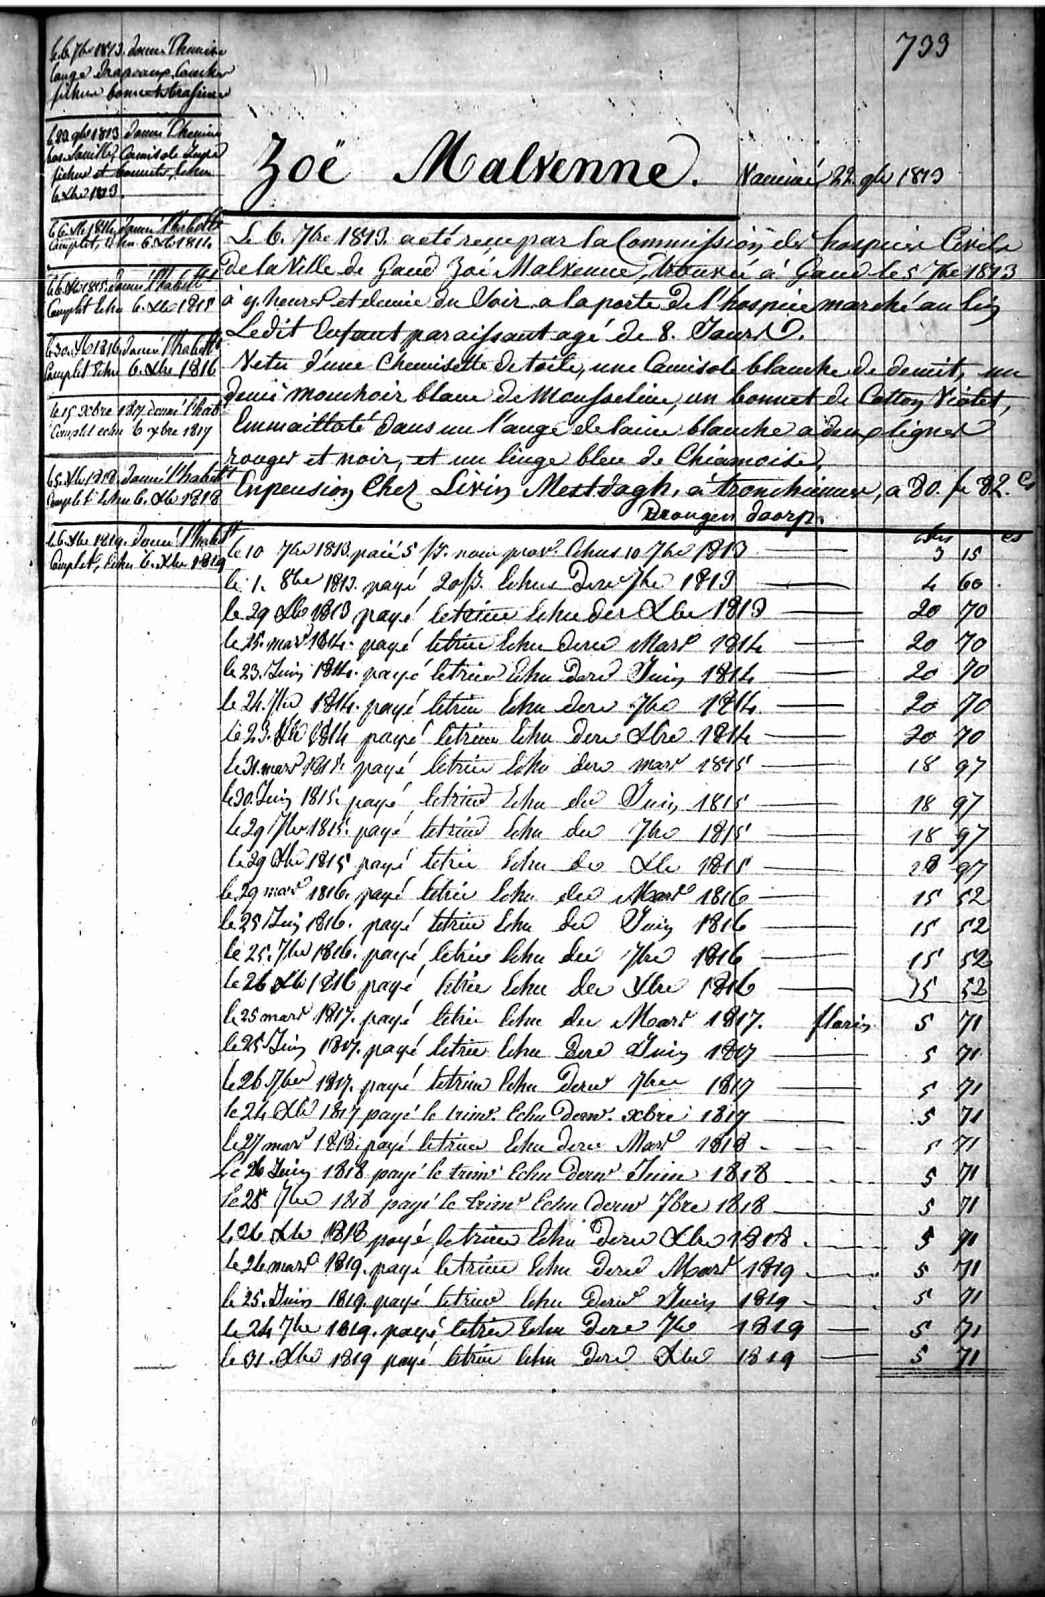 733
le 6 7bre 1813. donné 1 Chemise
Lange Drapeaux, Couche
fichu bonnets brasiere
le 22 9bre 1813 donné 1 Chemise
bas Souillez Camisole Jupe
fichu et bonnets, Echu
6 Xbre 1813.
le 6 Xbre 1814 donné 1 habillt
Complet, Echu 6. Xbre 1814
le 6 Xbre 1815. donné 1 habillt
Complet Echu 6. Xbre 1815
le 30. Xbre 1816 donné 1 habillt
Complet Echu 6. Xbre 1816
le 15 xbre 1817 donné 1 hab
Complet echu 6 xbre 1817
le 5 Xbre 1818. donné 1 habillt
Complet Echu 6. Xbre 1818
le 6 Xbre 1819. donné 1 habillt
Complet, Echu 6. Xbre 1819
Zoë Malvenne. Vacciné 22 9bre 1813
Le 6. 7bre 1813. a eté reçu par la Commission des hospices Civils
de la Ville de Gand Zoé Malvenne, trouvée à Gand le 5 7bre 1813
à 9. heures et demie du Soir a la porte de l'hospice marché au lin
Ledit Enfant paraissant agé de 8. Jours.
Vetu d'une Chemisette de toile, une Camisole blanche de demit, un
demi mouchoir blanc de Mousseline, un bonnet de Cotton Violet,
Emmailloté dans un lange de laine blanche a deux lignes
rouges et noir, et un linge bleu de Chiamoise,
En pension Chez Livin Mestdagh, à tronchiennes, a 80. fr 82. Cs
Drongen doorp.
cs
le 10 7bre 1813. paié 5 fr. nour prov. Echus 10 7bre 1813 3 15
le 1. 8bre 1813. payé 20 fr. Echus Dere 7bre 1813 4 60
le 29 Xbre 1813 payé le trim Echu der Xbre 1813 20 70
le 25. mars 1814. payé le trim Echu dere Mars 1814 20 70
le 23. Juin 1814. payé le trim Echu Dere Juin 1814 20 70
le 24. 7bre 1814. payé le trim Echu dere 7bre 1814 20 70
le 23. Xbre 1814 payé le trim Echu Dere Xbre 1814 20 70
le 31. mars 1815. payé le trim Echu dere mars 1815 18 97
le 30. Juin 1815. payé le trim Echu der Juin 1815 18 97
le 29 7bre 1815. payé le trim Echu der 7bre 1815 18 97
le 29 Xbre 1815 payé le trim Echu der Xbre 1815 18 97
le 29 mars 1816. payé le trim Echu der Mars 1816 15 52
le 25 Juin 1816. payé le trim Echu der Juin 1816 15 52
le 25. 7bre 1816. payé le trim Echu der 7bre 1816 15 52
le 26 Xbre 1816 payé le trim Echu der Xbre 1816 15 52
le 25 mars 1817. payé le trim Echu der Mars 1817. florins 5 71
le 25 Juin 1817. payé le trim Echu Dere Juin 1817 5 71
le 26 7bre 1817. payé le trim Echu Derer 7bre 1817 5 71
le 24 Xbre 1817 payé le trimr. Echu Dernr. xbre 1817 5 71
le 27 mars 1818. payé le trim Echu dere Mars 1818 5 71
Le 26 Juin 1818 payé le trimr Echu Dernr Juin 1818 5 71
le 28 7bre 1818 payé le trimr Echu Dernr 7bre 1818 5 71
le 26 Xbre 1818 payé, le trim Echu Dere Xbre 1818 5 71
le 26 mars 1819. payé le trim Echu Dere Mars 1819 5 71
le 25. Juin 1819. payé le trim Echu Derer Juin 1819 5 71
le 24 7bre 1819. payé le trim Echu Dere 7bre 1819 5 71
le 31. Xbre 1819 payé le trim Echu Dere Xbre 1819 5 71